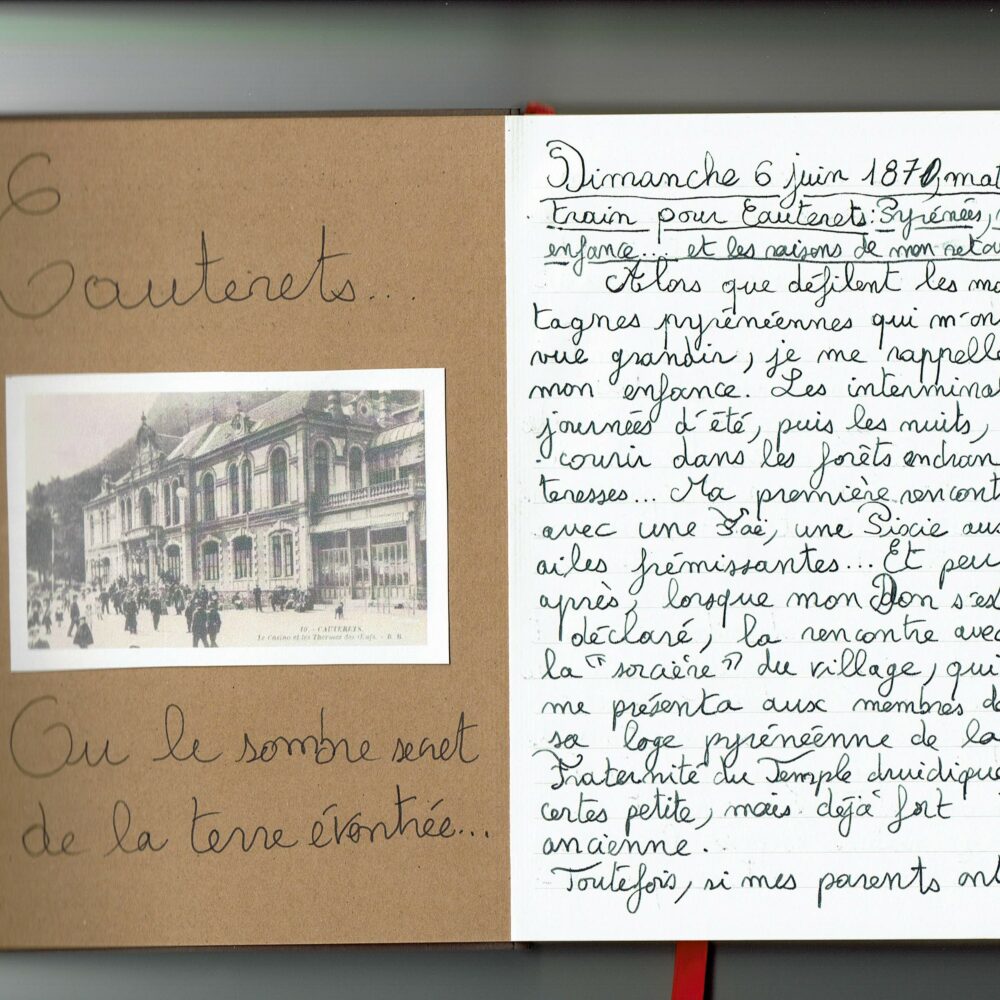 6
Cauterets...
10. - CAUTERETS.
Le Casino et les Thermes des Œufs. - B. R.
Ou le sombre secret
de la terre éventrée...
Dimanche 6 juin 1870, mat
train pour Cauterets: Pyrénées,
enfance... et les raisons de mon retou
Alors que défilent les mo
tagnes pyrénéennes qui m'on
vue grandir, je me rappelle
mon enfance. Les interminal
journées d'été, puis les nuits,
courir dans les forêts enchan
teresses... Ma première rencont
avec une Faë, une Pixie aux
ailes frémissantes... Et peu
après, lorsque mon Don s'est
déclaré, la rencontre avec
la "sorcière" du village, qui
me présenta aux membres de
sa loge pyrénéenne de la
Fraternité du Temple druidique
certes petite, mais déjà fort
ancienne.
Toutefois, si mes parents ont